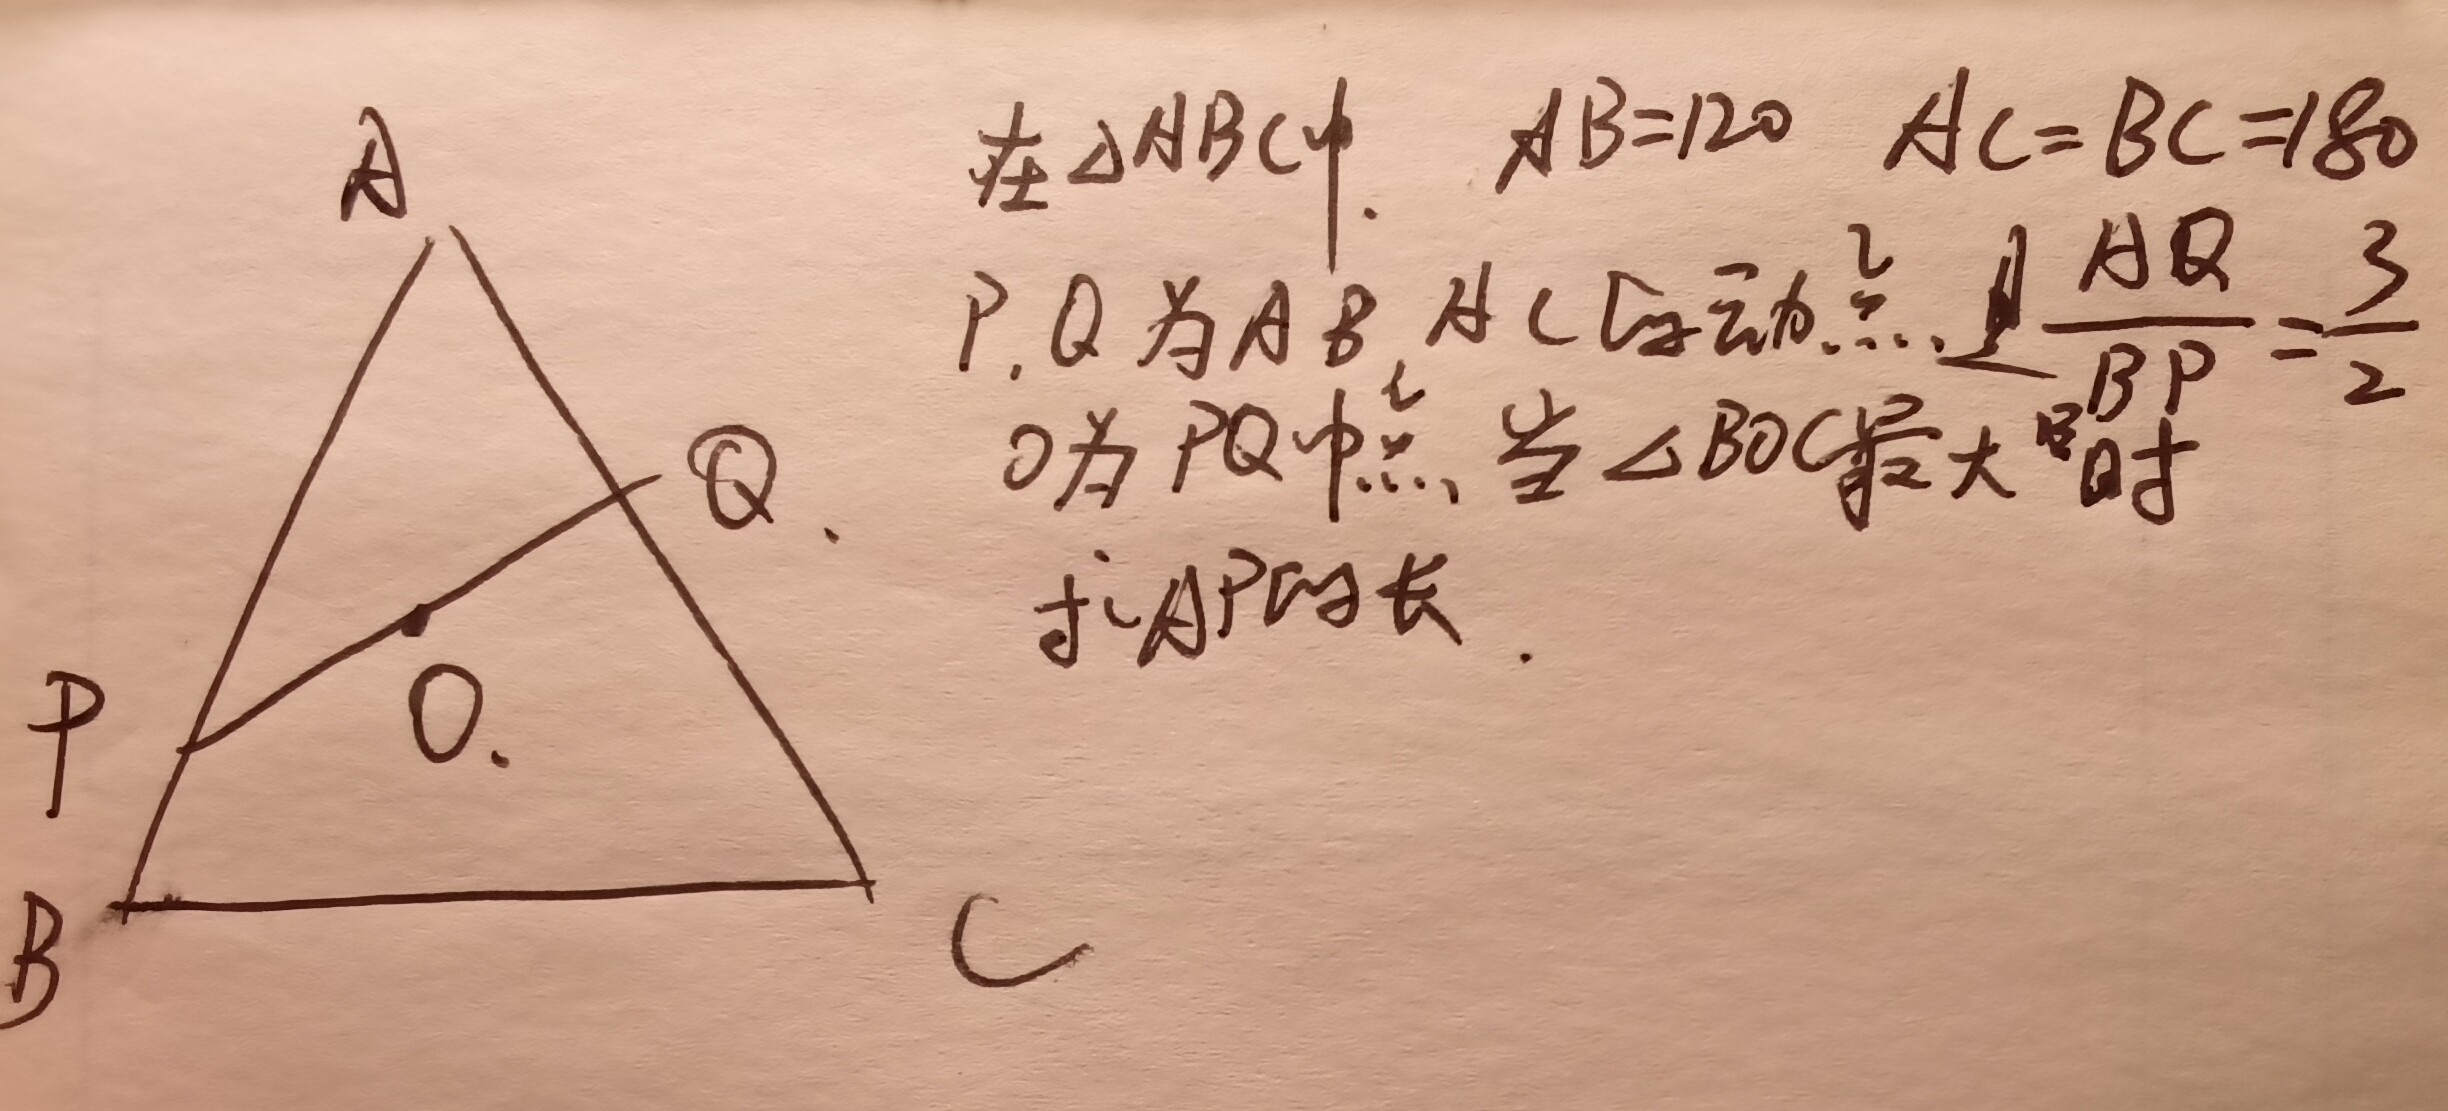 A
Q.
P
O.
B
C
在△ABC中. AB=120 AC=BC=180
P.Q为AB,AC的动点.且AQ/BP=3/2
O为PQ中点,当△BOC最大时
求AP的长.